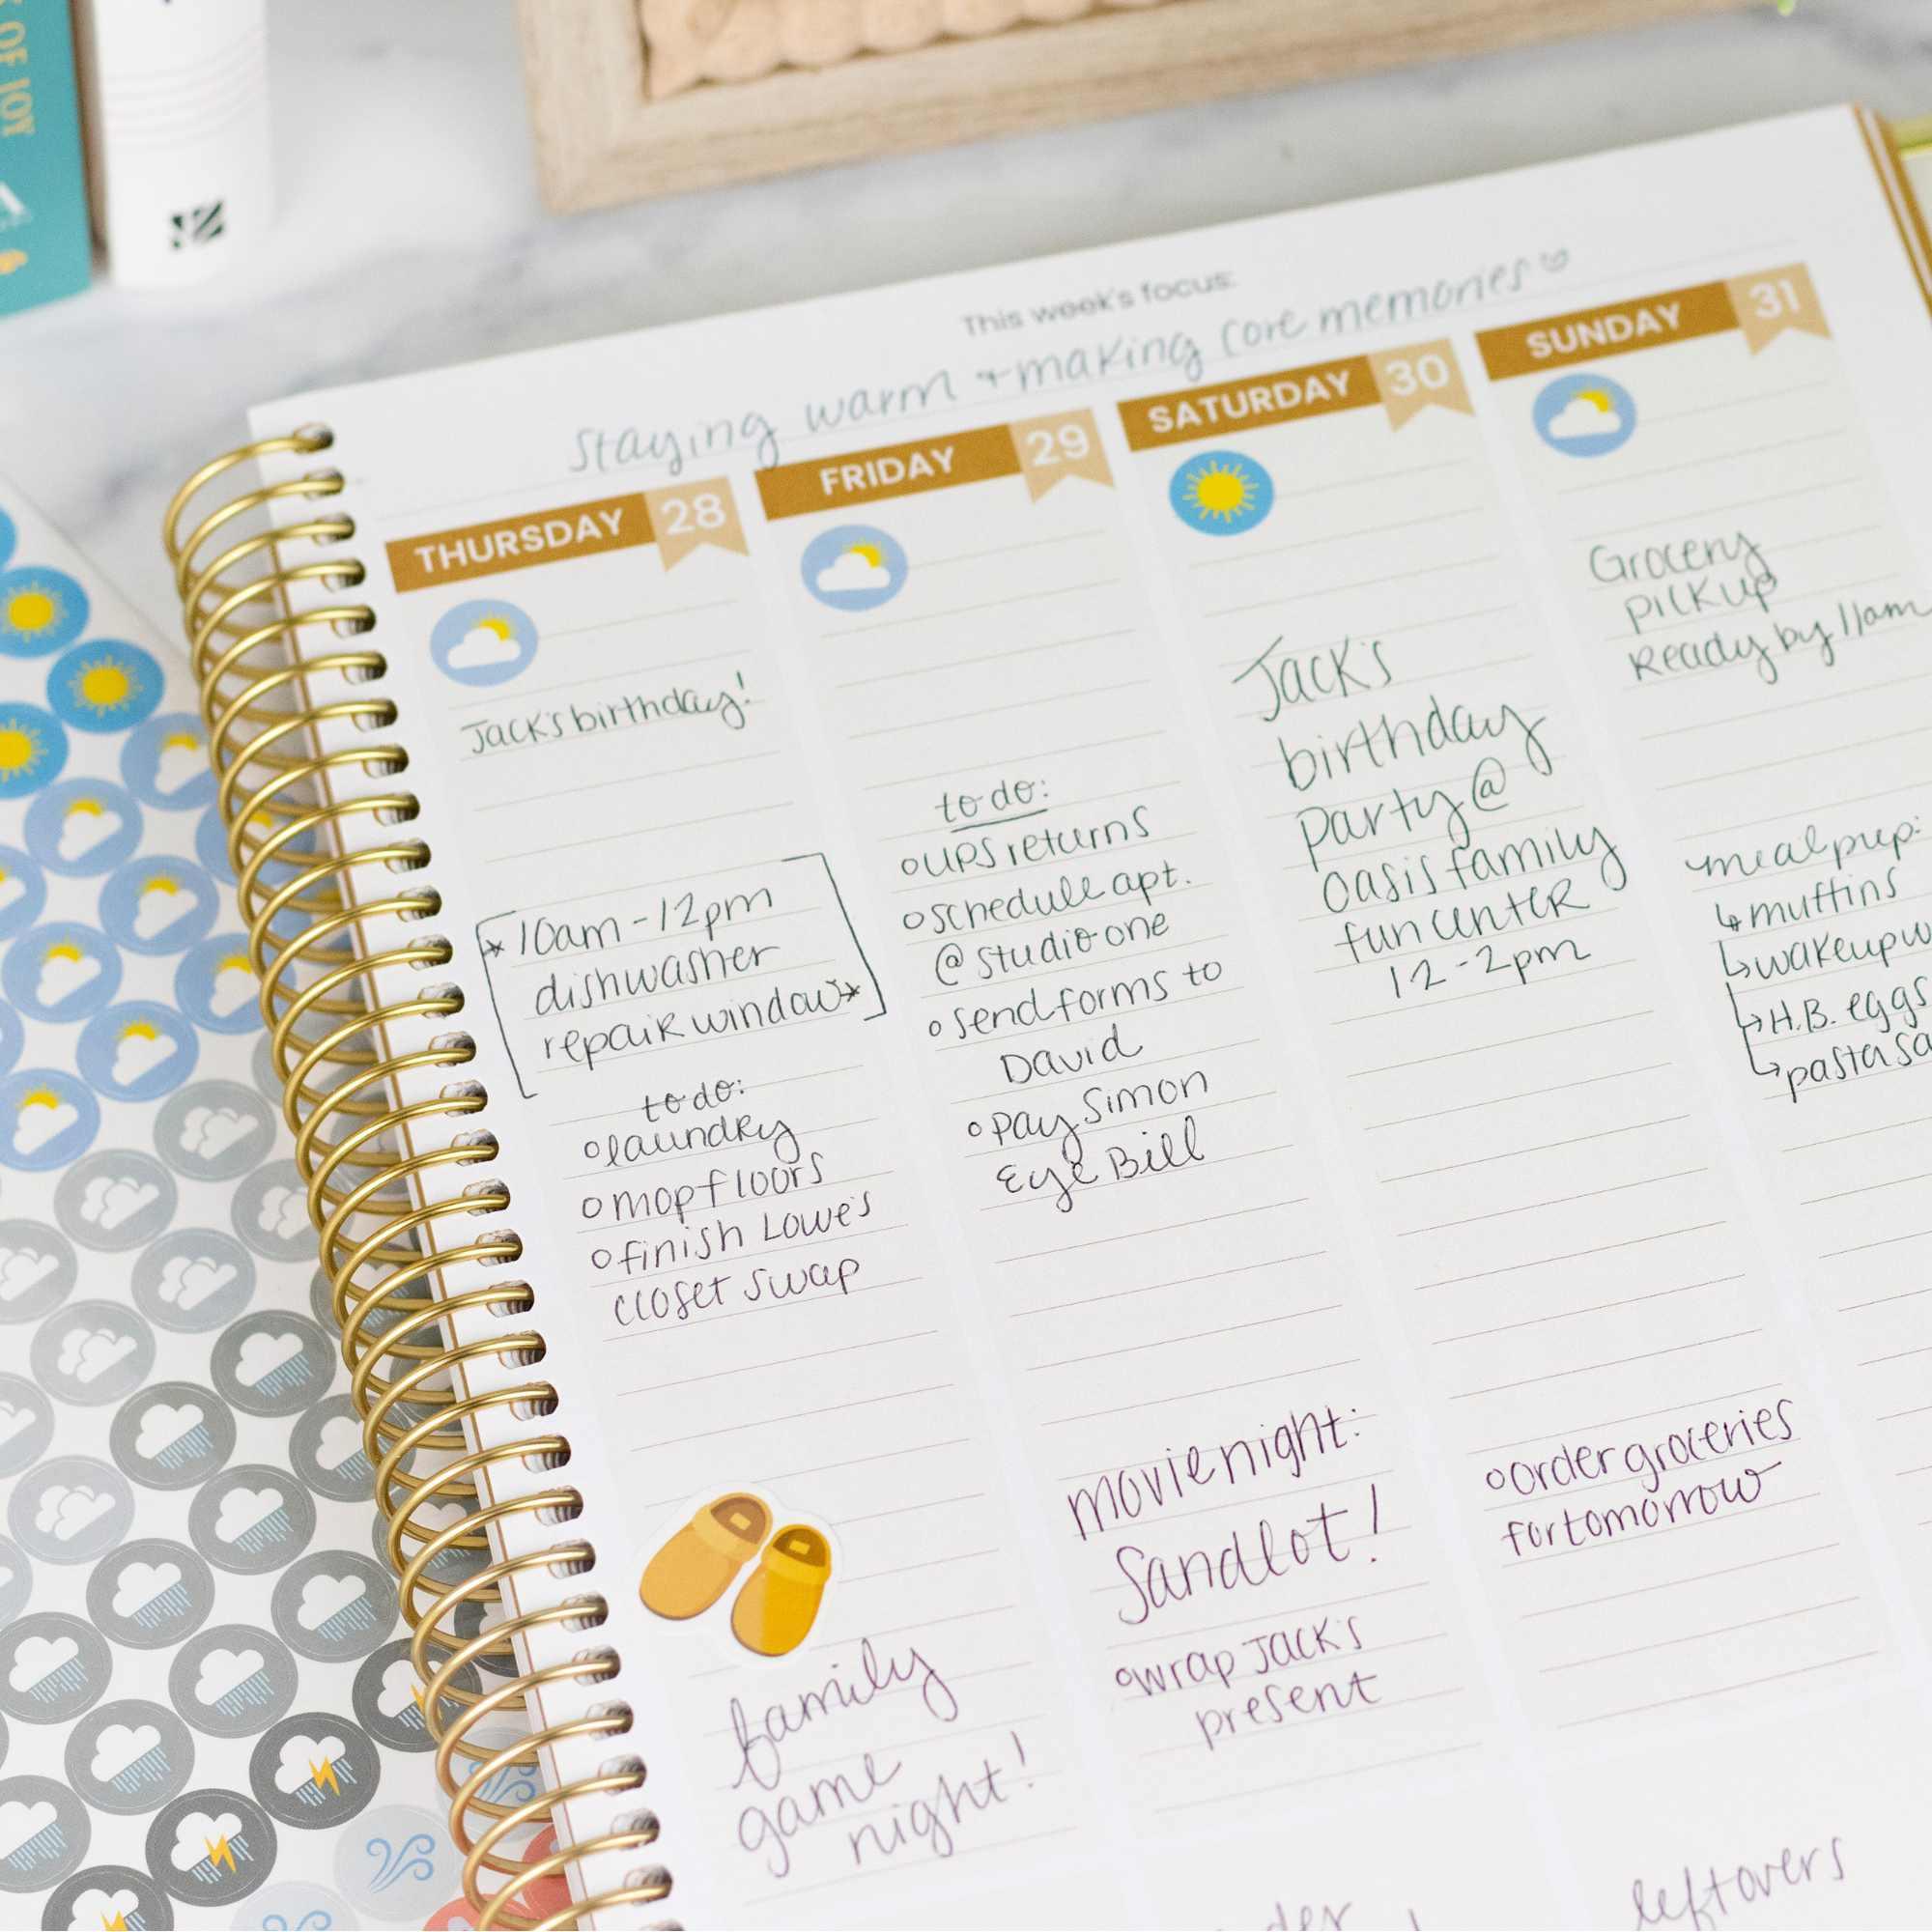 OF JOY
This week's focus:
Staying warm + making core memories
THURSDAY 28
Jack's birthday!
*10am-12pm
dishwasher
repair window*
to do:
laundry
mop floors
finish Lowe's
closet swap
family
game
night!
FRIDAY 29
to do:
UPS returns
schedule apt.
@ studio one
send forms to
David
pay Simon
Eye Bill
movie night:
Sandlot!
wrap Jack's
present
SATURDAY 30
Jack's
birthday
party @
oasis family
fun center
12-2pm
order groceries
for tomorrow
leftovers
SUNDAY 31
Grocery
pickup
Ready by 11am
meal prep:
↳ muffins
↳ wakeup
↳ H.B. eggs
↳ pasta